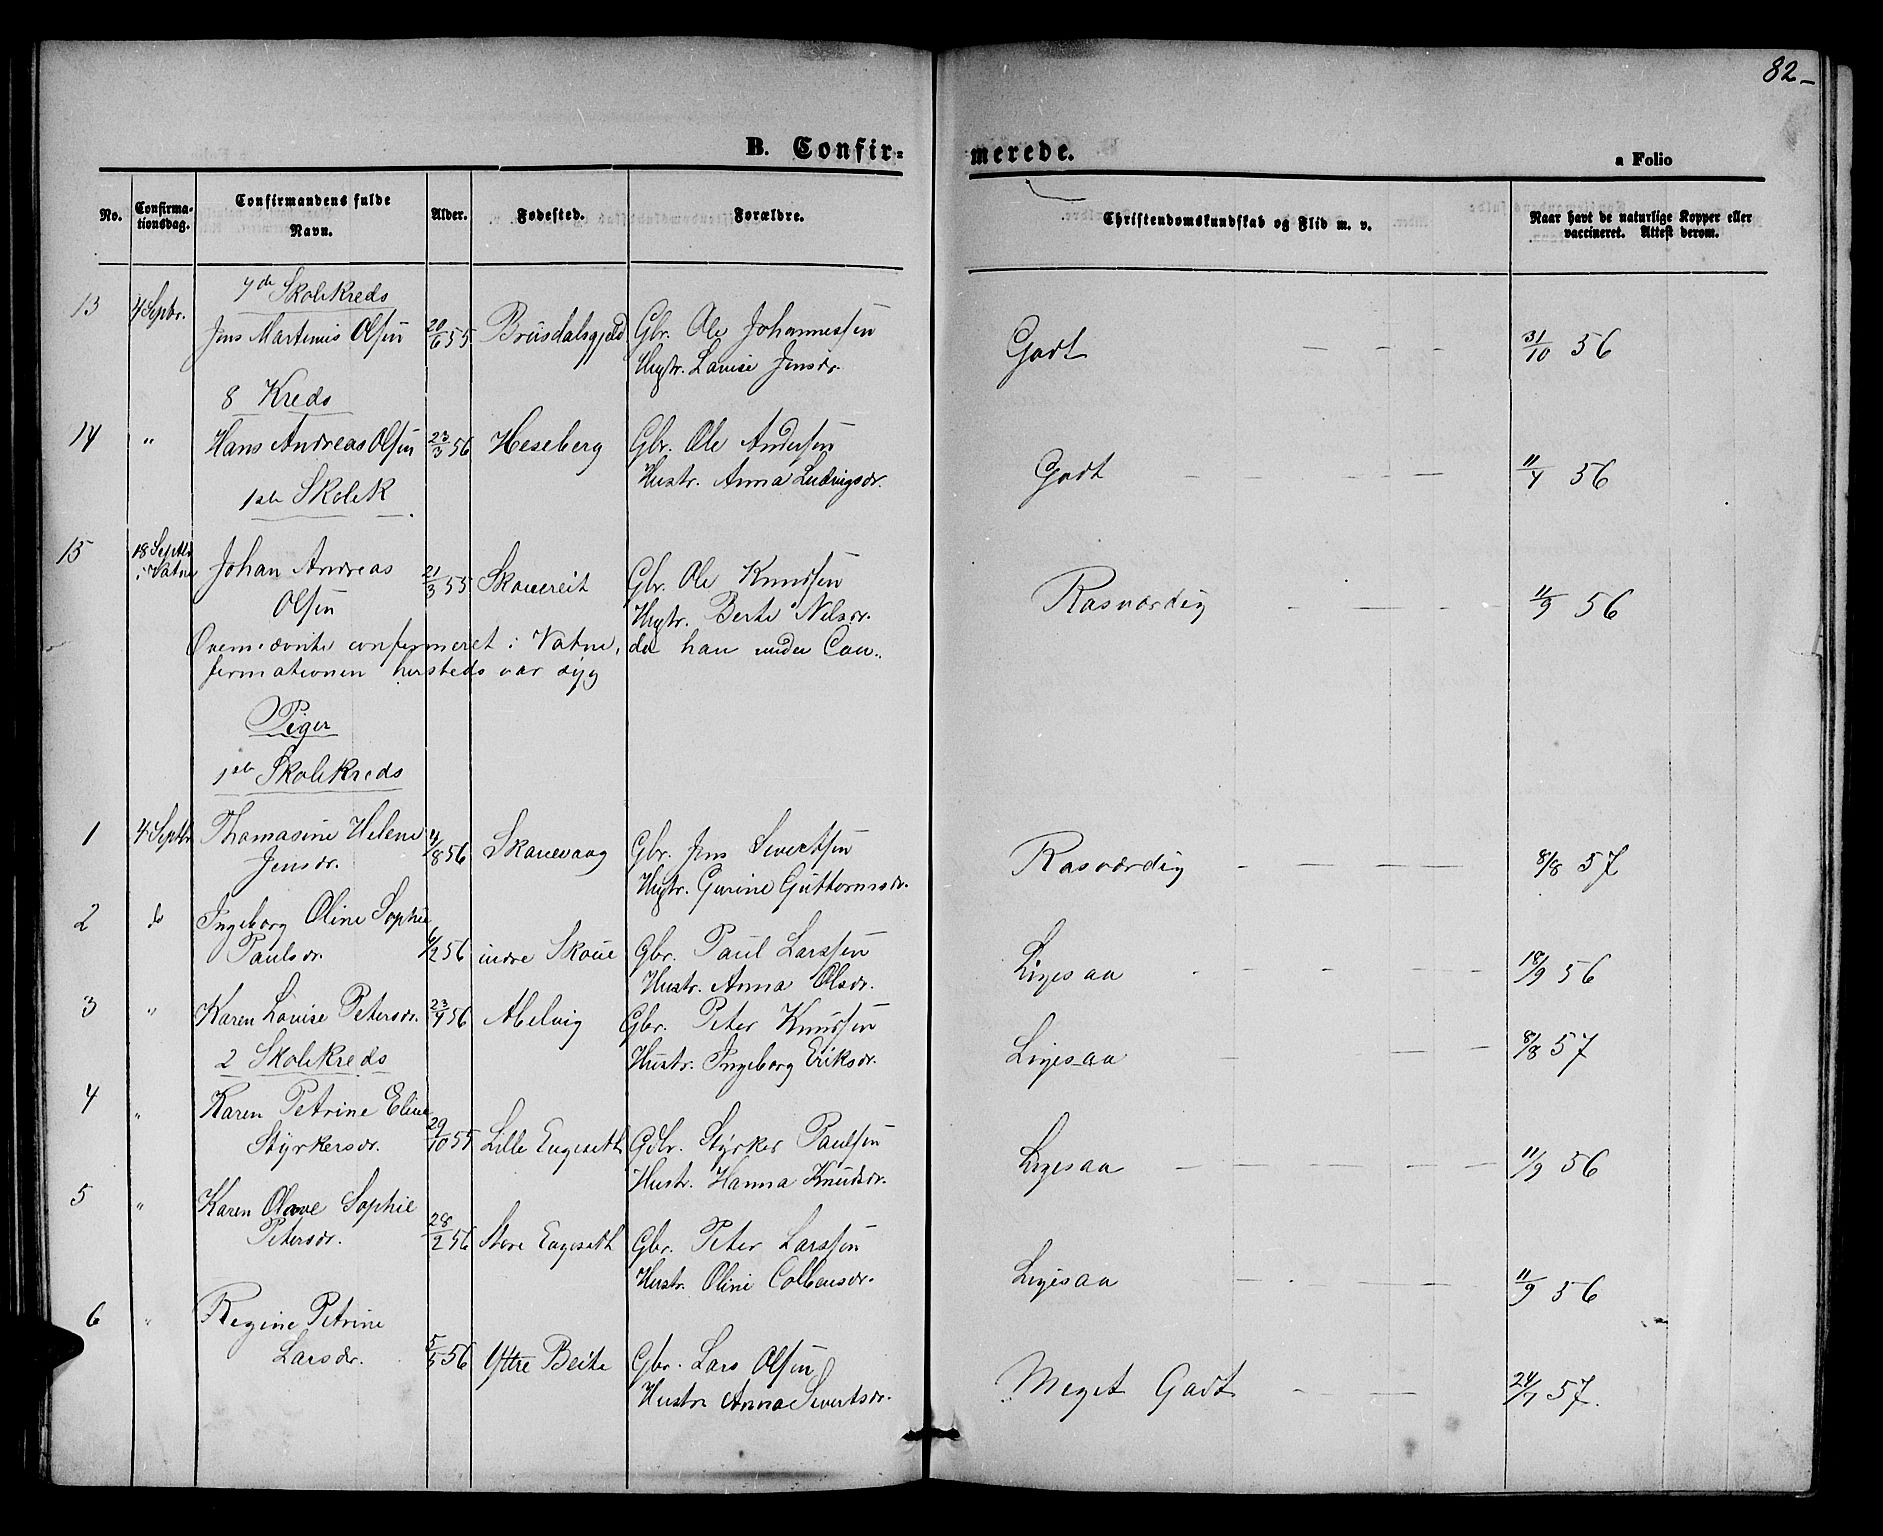 82-
B. Confir-
merede.
a Folio
No.
Confirma-
tionsdag.
Confirmandens fulde
Navn.
Alder.
Fødested.
Forældre.
Christendomskundskab og Flid m. v.
Naar havt de naturlige Kopper eller
vaccineret. Attest derom.
7de Skolekreds
13 4 Septbr. Jens Martinus Olsen 20/6 55 Brusdalsgjeld Gbr. Ole Johannessen Godt 31/10 56
Hustr. Lovise Jensdr.
8 Kreds
14 " Hans Andreas Olsen 23/3 56 Heseberg Gbr. Ole Andersen Godt 11/4 56
Hustr. Anna Ludvigsdr.
1ste Skolek.
15 18 Septbr. i Vatne Johan Andreas 21/3 55 Skouereit Gbr. Ole Knudsen Rosværdig 11/9 56
Olsen Hustr. Berte Nilsdr.
Ovennævnte confirmeret i Vatne, da han under Con-
firmationen hersteds var syg
Piger
1ste Skolekreds
1 4 Septbr. Thomasine Helene 11/8 56 Skouevaag Gbr. Jens Sivertsen Rosværdig 8/8 57
Jensdr. Hustr. Gurine Guttormsdr.
2 do Ingeborg Oline Sophie
Paulsdr. 6/2 56 indre Skoue Gbr. Paul Larssen Ligesaa 18/9 56
Hustr. Anna Olsdr.
3 " Karen Lovise Petersdr. 23/4 56 Abelvig Gbr. Peter Knudsen Ligesaa 8/8 57
2 Skolekreds Hustr. Ingeborg Eriksdr.
4 " Karen Petrine Eline
Styrkersdr. 29/10 55 Lille Engeseth Gdbr. Styrker Paulsen Ligesaa 11/9 56
Hustr. Hanna Knudsdr.
5 " Karen Olave Sophie
Petersdr. 28/2 56 Store Engeseth Gbr. Peter Larssen Ligesaa 11/9 56
Hustr. Oline Colbensdr.
6 " Regine Petrine
Larsdr. 5/5 56 Yttre Beite Gbr. Lars Olsen Meget Godt 24/7 57.
Hustr. Anna Sivertsdr.